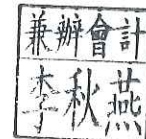 兼辦會計
李秋燕